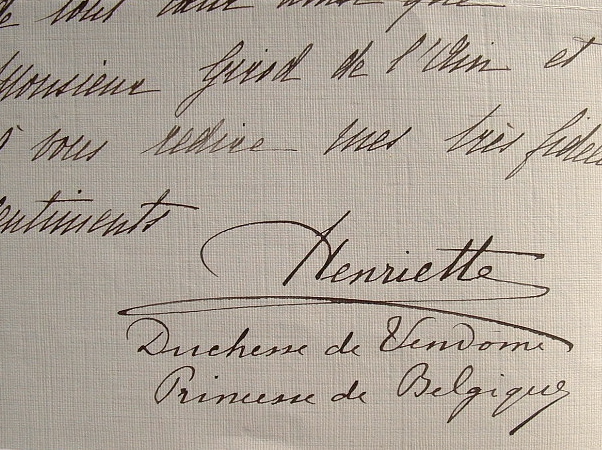 de tout cœur ainsi que
Monsieur Girod de l'Ain et
à vous redire mes très fidèles
sentiments
Henriette
Duchesse de Vendôme
Princesse de Belgique